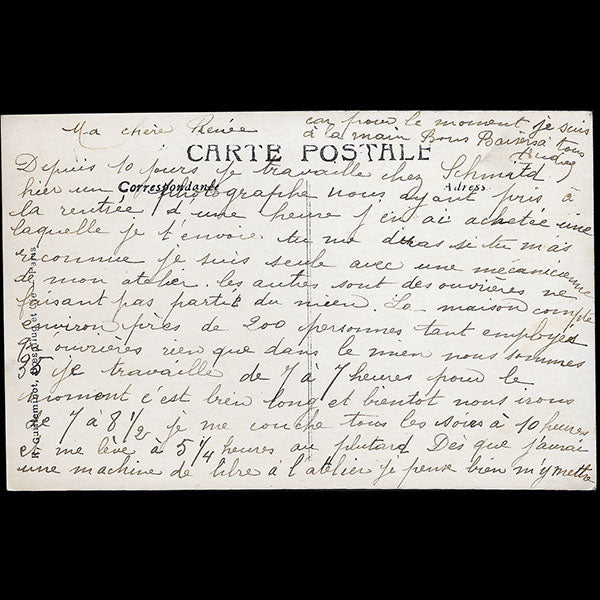 car pour le moment je suis
Ma chère Renée
à la main Bons Baisers à tous
Audrey
CARTE POSTALE
Depuis 10 jours je travaille chez Schmitd
Correspondance
Adresse
hier un photographe nous ayant pris à
la rentrée d'une heure j'en ai achetée une
laquelle je t'envoie tu me diras si tu m'as
reconnue je suis seule avec une mécanicienne
de mon atelier. les autres sont des ouvrières ne
faisant pas partie du mien. La maison compte
environ près de 200 personnes tant employés
qu'ouvrières rien que dans le mien nous sommes
35 je travaille de 7 à 7 heures pour le
moment c'est bien long et bientôt nous irons
de 7 à 8 1/2 je me couche tous les soirs à 10 heures
et me lève à 5 1/4 heures au plutard Dès que j'aurai
une machine de libre à l'atelier je peux bien m'y mettre
R. Guilleminot, Boespflug et Cie - Paris